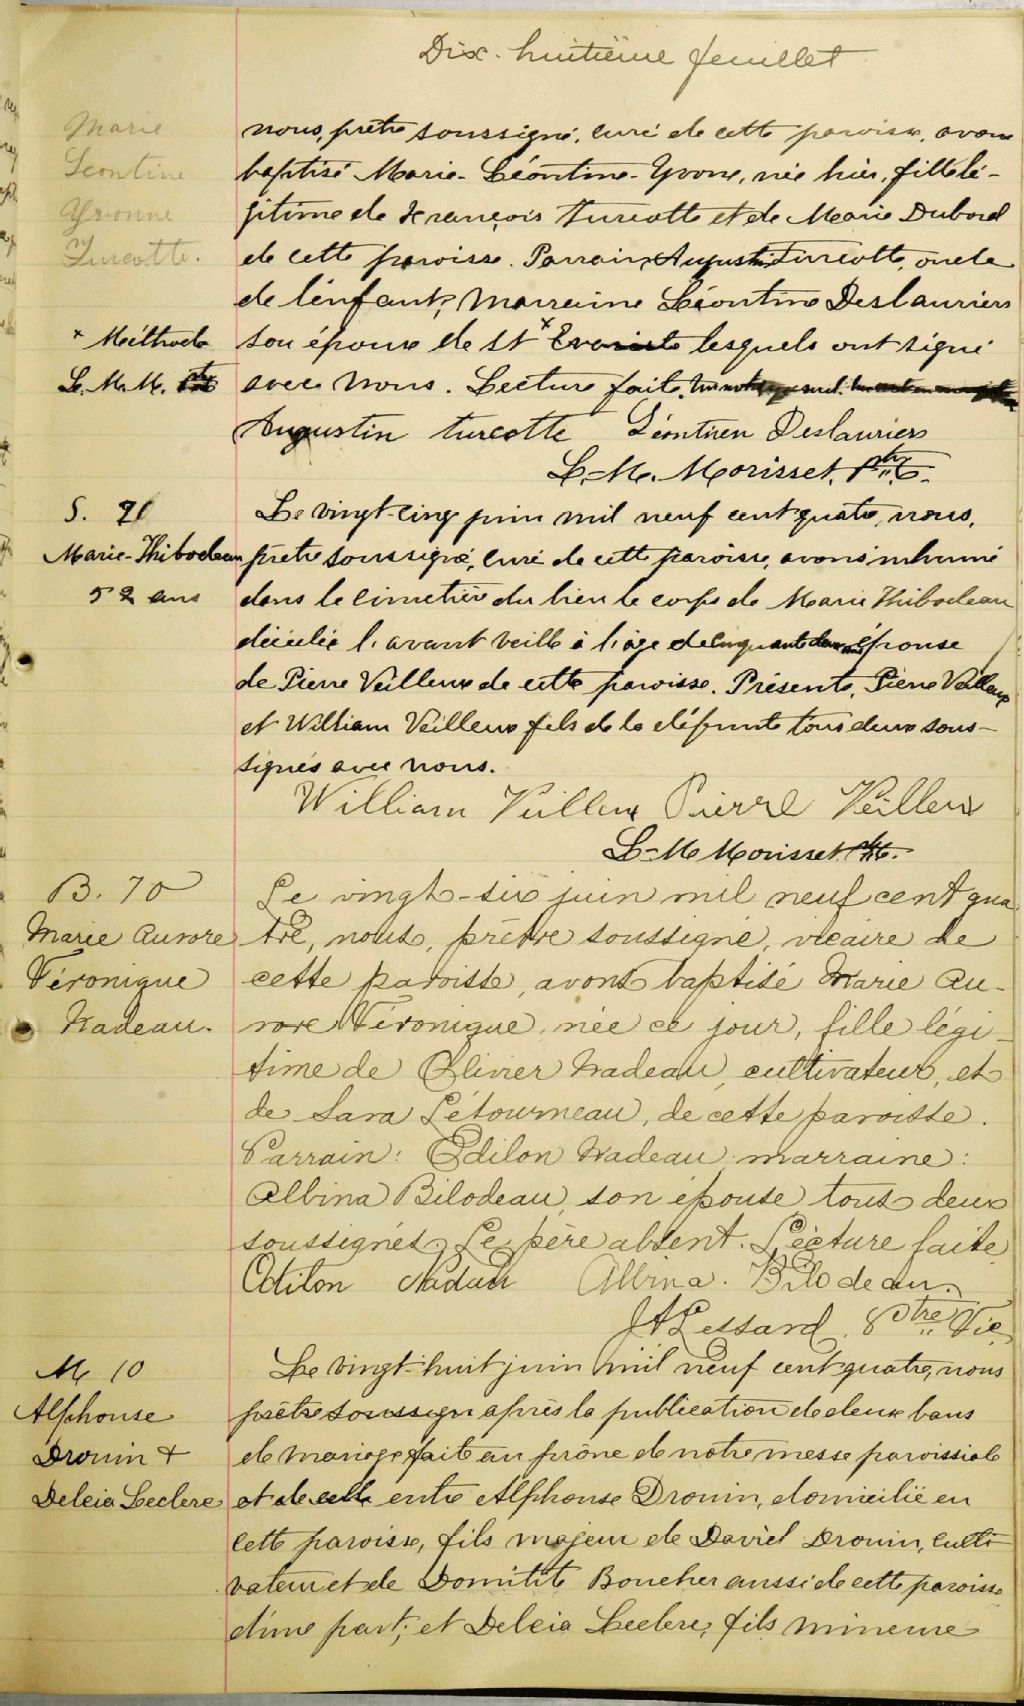 Dix-huitième feuillet
Marie
Léontine
Yvonne
Turcotte.
nous, prêtre soussigné, curé de cette paroisse, avons
baptisé Marie-Léontine-Yvone, née hier, fille lé-
gitime de François Turcotte et de Marie Dubord
de cette paroisse. Parrain, Augustin Turcotte, oncle
de l'enfant; Marraine Léontine Deslauriers
x Méthode
son épouse de St x Evariste lesquels ont signé
L. M. M. Ptre
avec nous. Lecture faite.
Augustin Turcotte Léontien Deslauriers
L.-M. Morisset, Ptre.
S. 21
Marie-Thibodeau
52 ans
Le vingt-cinq juin mil neuf cent quatre, nous,
prêtre soussigné, curé de cette paroisse, avons inhumé
dans le cimetière du lieu le corps de Marie Thibodeau
décédée l'avant veille à l'âge de cinquante deux ans épouse
de Pierre Veilleux de cette paroisse. Présents, Pierre Veilleux
et William Veilleux fils de la défunte tous deux sous-
signés avec nous.
William Veilleux Pierre Veilleux
L-M Morisset Ptre.
B. 70
Marie Aurore
Véronique
Nadeau.
Le vingt-six juin mil neuf cent qua
tre, nous, prêtre soussigné, vicaire de
cette paroisse, avons baptisé Marie Au-
rore Véronique, née ce jour, fille légi-
time de Olivier Nadeau, cultivateur, et
de Sara Létourneau, de cette paroisse.
Parrain: Odilon Nadeau; marraine:
Albina Bilodeau, son épouse tous deux
soussignés. Le père absent. Lecture faite
Odilon Nadau Albina. Bilodeau.
JA Lessard, Ptre Vic
M. 10
Alphonse
Drouin &
Deleia Leclerc
Le vingt-huit juin mil neuf cent quatre, nous
prêtre soussigné après la publication de deux bans
de mariage faite au prône de notre messe paroissiale
et de celle entre Alphonse Drouin, domicilié en
cette paroisse, fils majeur de David Drouin, culti
vateur et de Domitile Boucher aussi de cette paroisse
d'une part; et Deleia Leclerc, fils mineure